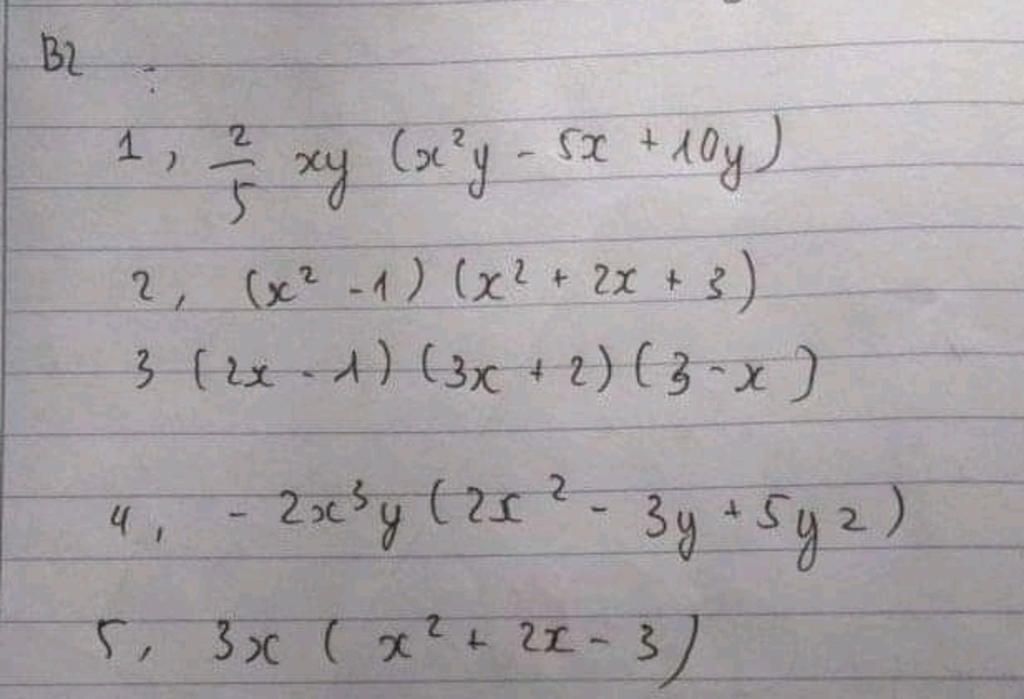 B2 :
1, 2/5 xy (x²y - 5x + 10y)
2, (x² - 1) (x² + 2x + 3)
3 (2x - 1) (3x + 2) (3 - x)
4, - 2x³y (2x² - 3y + 5yz)
5, 3x (x² + 2x - 3)